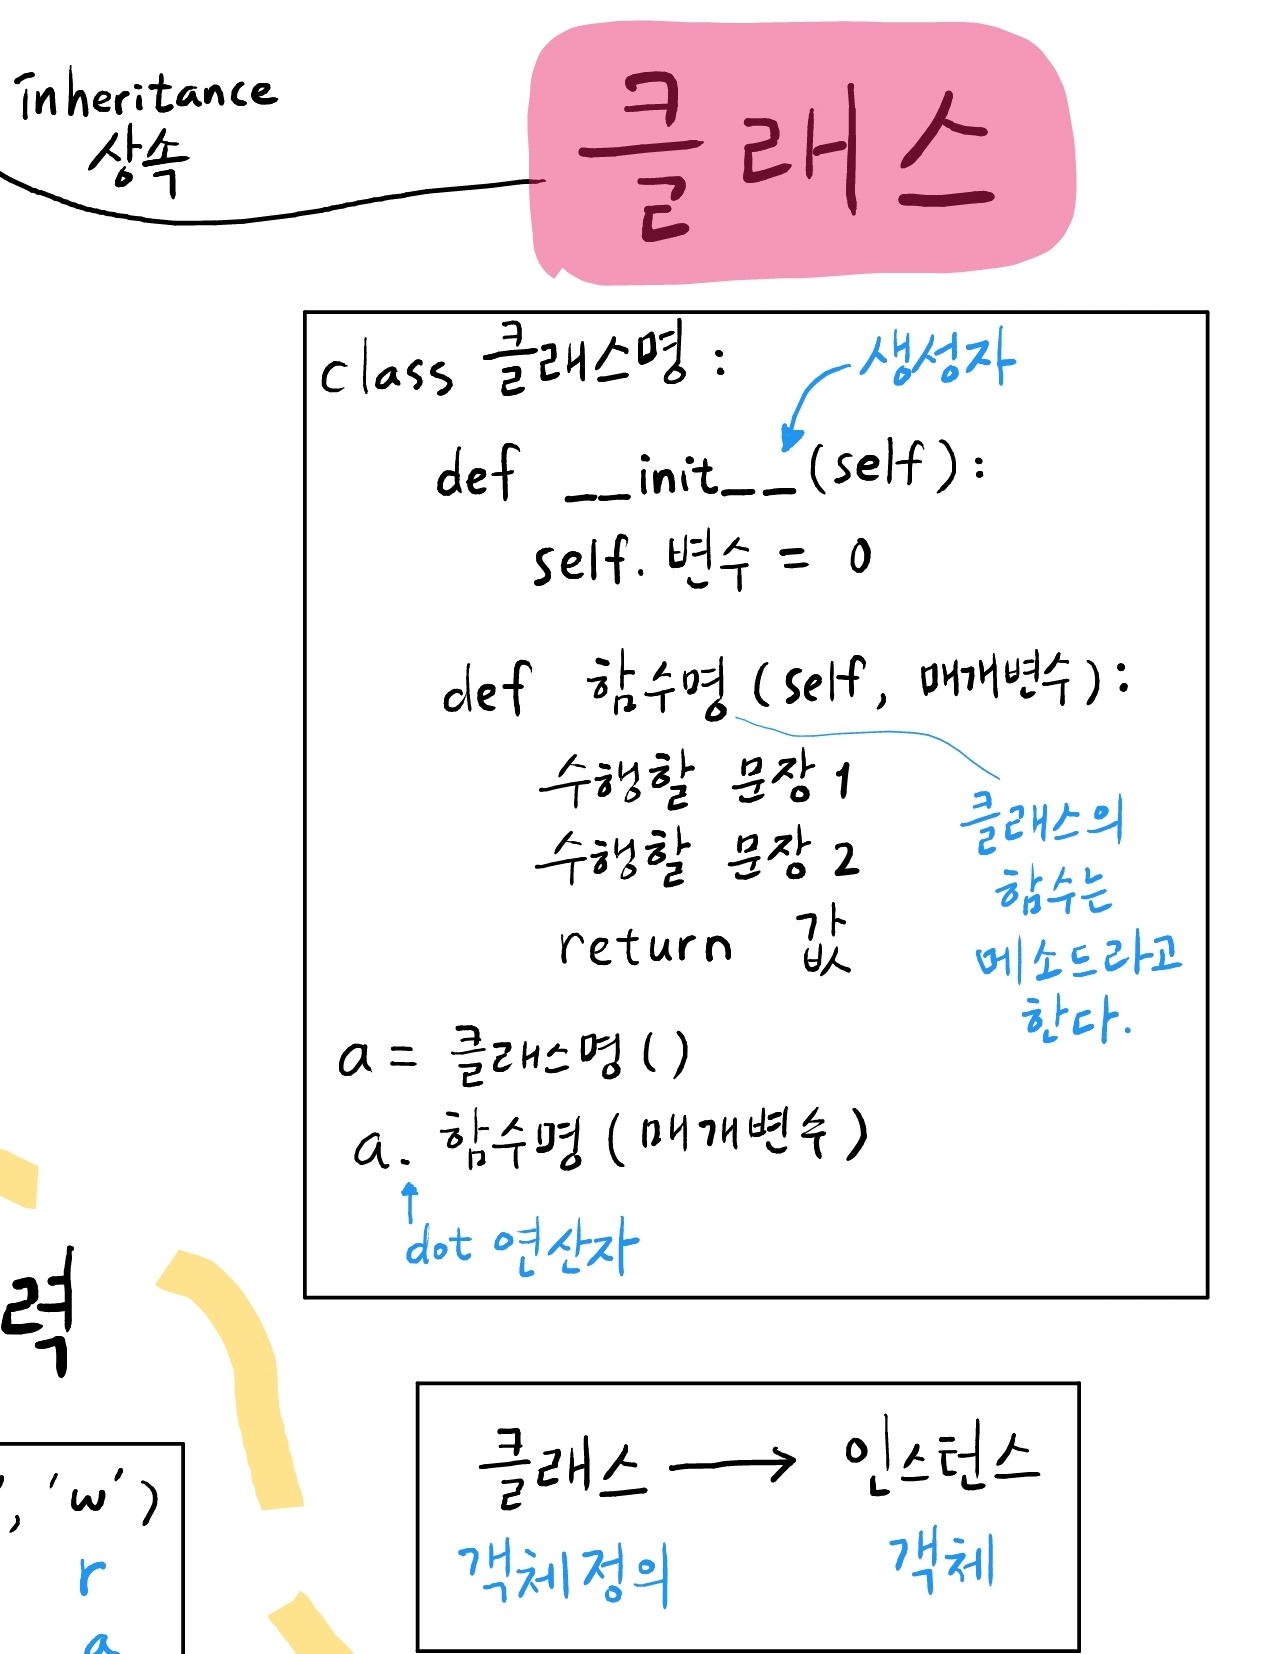 inheritance
상속
클래스
class 클래스명 :
생성자
def __init__(self):
self.변수 = 0
def 함수명(self, 매개변수):
수행할 문장1
수행할 문장2
return 값
클래스의
함수는
메소드라고
한다.
a = 클래스명()
a.함수명(매개변수)
dot 연산자
력
', 'w')
r
a
클래스 → 인스턴스
객체정의 객체